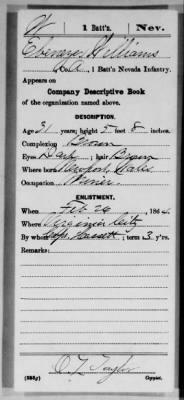 W | 1 Batt'n. | Nev.
Ebenezer Williams
Co. A, 1 Batt'n Nevada Infantry.
Appears on
Company Descriptive Book
of the organization named above.
DESCRIPTION.
Age 31 years; height 5 feet 8 inches.
Complexion Brown
Eyes Dark; hair Brown
Where born Newport, Wales
Occupation Miner
ENLISTMENT.
When Feb 26, 1864
Where Virginia City
By whom Capt. Hassett; term 3 y'rs.
Remarks:
O T Taylor
(383g) Copyist.